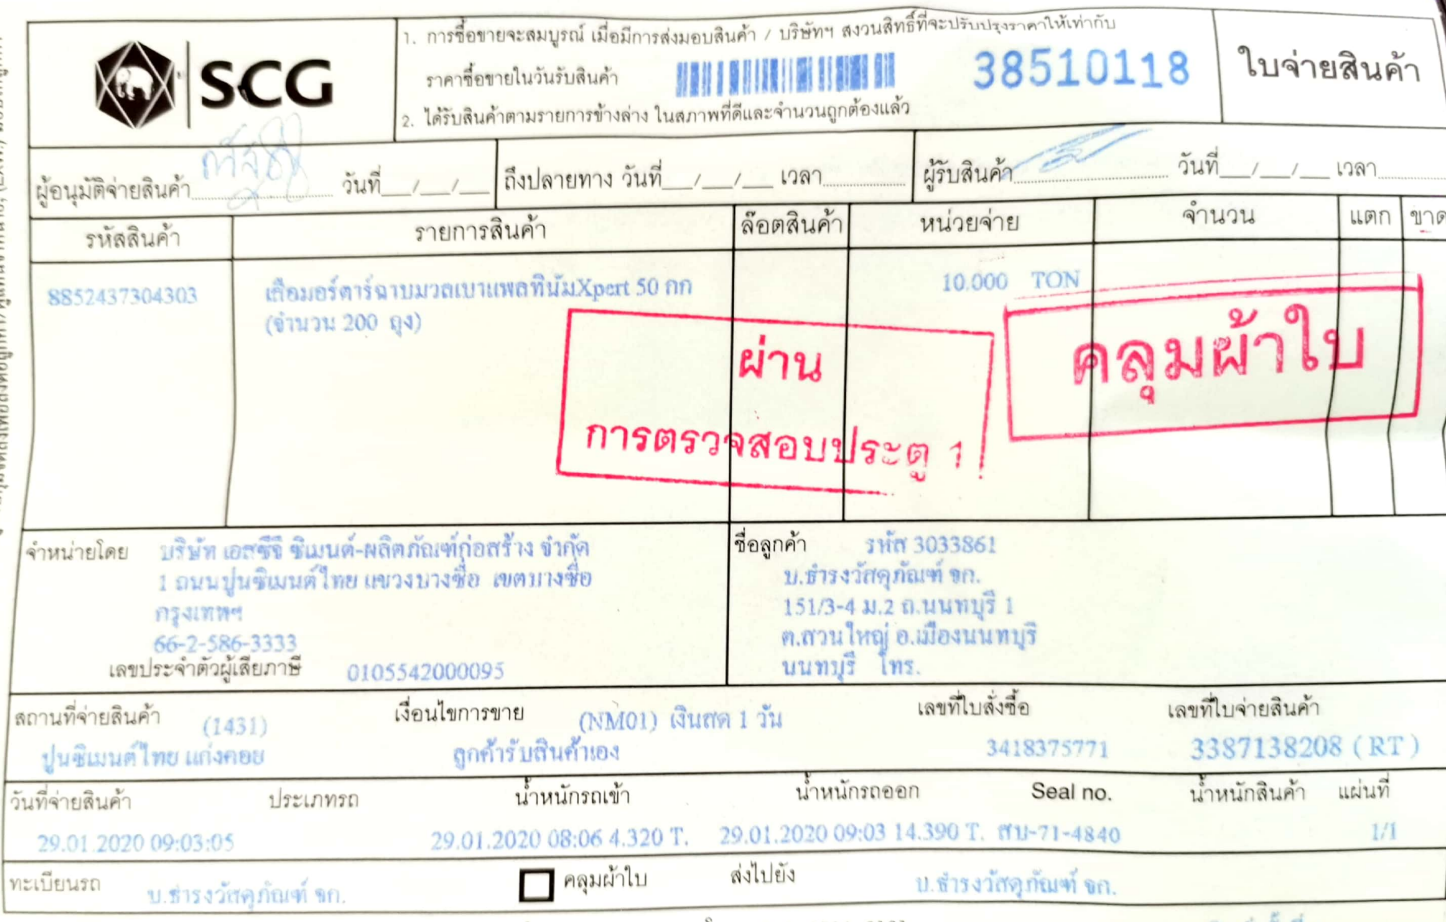 SCG
1. การซื้อขายจะสมบูรณ์ เมื่อมีการส่งมอบสินค้า / บริษัทฯ สงวนสิทธิ์ที่จะปรับปรุงราคาให้เท่ากับ
ราคาซื้อขายในวันรับสินค้า
38510118
ใบจ่ายสินค้า
2. ได้รับสินค้าตามรายการข้างล่าง ในสภาพที่ดีและจำนวนถูกต้องแล้ว
ผู้อนุมัติจ่ายสินค้า วันที่__/__/__ ถึงปลายทาง วันที่__/__/__ เวลา ผู้รับสินค้า วันที่__/__/__ เวลา
รหัสสินค้า รายการสินค้า ล๊อตสินค้า หน่วยจ่าย จำนวน แตก ขาด
8852437304303 เสือมอร์ตาร์ฉาบมวลเบาแพลทินัมXpert 50 กก 10.000 TON
(จำนวน 200 ถุง)
ผ่าน
การตรวจสอบประตู 1
คลุมผ้าใบ
จำหน่ายโดย บริษัท เอสซีจี ซิเมนต์-ผลิตภัณฑ์ก่อสร้าง จำกัด
1 ถนนปูนซิเมนต์ไทย แขวงบางซื่อ เขตบางซื่อ
กรุงเทพฯ
66-2-586-3333
เลขประจำตัวผู้เสียภาษี 0105542000095
ชื่อลูกค้า รหัส 3033861
บ.ธำรงวัสดุภัณฑ์ จก.
151/3-4 ม.2 ถ.นนทบุรี 1
ต.สวนใหญ่ อ.เมืองนนทบุรี
นนทบุรี โทร.
สถานที่จ่ายสินค้า (1431) เงื่อนไขการขาย (NM01) เงินสด 1 วัน เลขที่ใบสั่งซื้อ เลขที่ใบจ่ายสินค้า
ปูนซิเมนต์ไทย แก่งคอย ลูกค้ารับสินค้าเอง 3418375771 3387138208 (RT)
วันที่จ่ายสินค้า ประเภทรถ น้ำหนักรถเข้า น้ำหนักรถออก Seal no. น้ำหนักสินค้า แผ่นที่
29.01.2020 09:03:05 29.01.2020 08:06 4.320 T. 29.01.2020 09:03 14.390 T. สบ-71-4840 1/1
ทะเบียนรถ บ.ธำรงวัสดุภัณฑ์ จก. คลุมผ้าใบ ส่งไปยัง บ.ธำรงวัสดุภัณฑ์ จก.